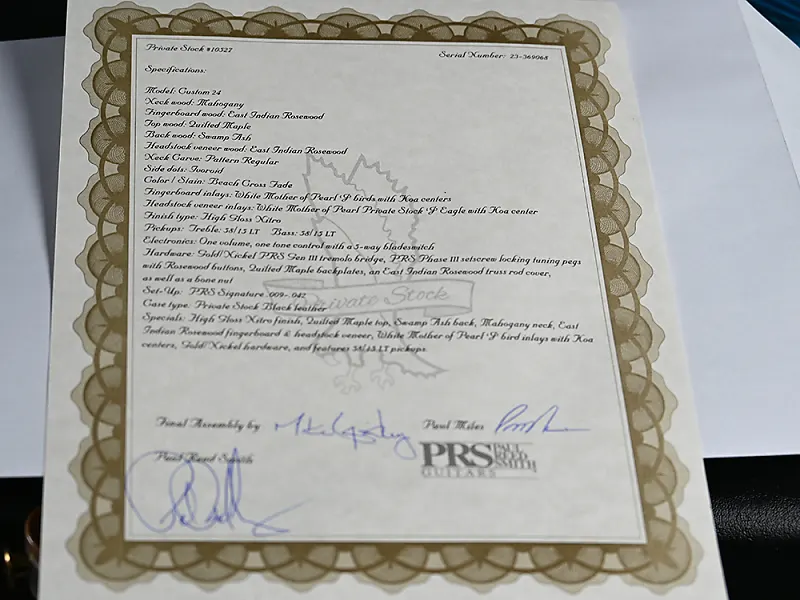 Private Stock #10327
Serial Number: 23-369068
Specifications:
Model: Custom 24
Neck wood: Mahogany
Fingerboard wood: East Indian Rosewood
Top wood: Quilted Maple
Back wood: Swamp Ash
Headstock veneer wood: East Indian Rosewood
Neck Carve: Pattern Regular
Side dots: Ivoroid
Color / Stain: Beach Cross Fade
Fingerboard inlays: White Mother of Pearl "J" birds with Koa centers
Headstock veneer inlays: White Mother of Pearl Private Stock "J" Eagle with Koa center
Finish type: High Gloss Nitro
Pickups: Treble: 58/15 LT Bass: 58/15 LT
Electronics: One volume, one tone control with a 5-way bladeswitch
Hardware: Gold/Nickel PRS Gen III tremolo bridge, PRS Phase III setscrew locking tuning pegs
with Rosewood buttons, Quilted Maple backplates, an East Indian Rosewood truss rod cover,
as well as a bone nut
Set-Up: PRS Signature .009-.042
Case type: Private Stock Black leather
Private Stock
Specials: High Gloss Nitro finish, Quilted Maple top, Swamp Ash back, Mahogany neck, East
Indian Rosewood fingerboard & headstock veneer, White Mother of Pearl "J" bird inlays with Koa
centers, Gold/Nickel hardware, and features 58/15 LT pickups
Final Assembly by
Paul Miles
Paul Reed Smith
PRS PAUL
REED
SMITH
GUITARS